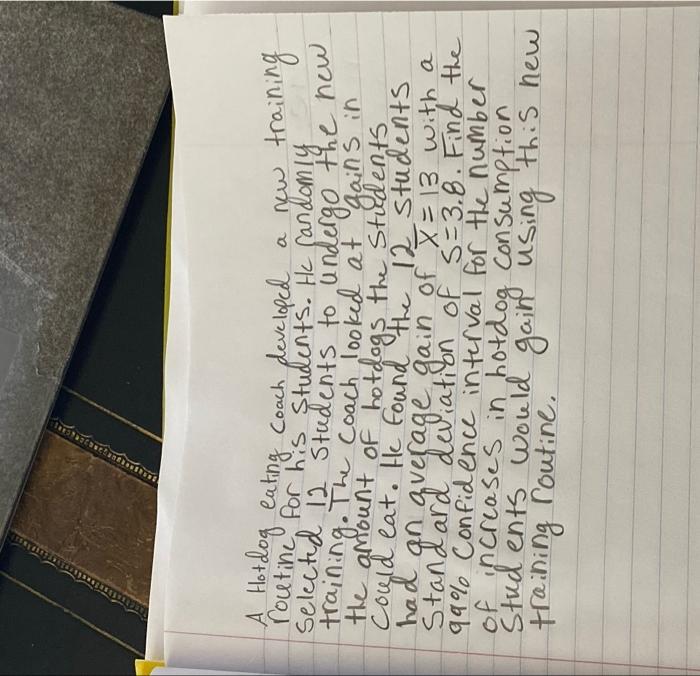 A Hotdog eating coach developed a new training
routine for his students. He randomly
selected 12 students to undergo the new
training. The coach looked at gains in
the amount of hotdogs the students
could eat. He found the 12 students
had an average gain of x̄ = 13 with a
standard deviation of s=3.8. Find the
99% confidence interval for the number
of increases in hotdog consumption
students would gain using this new
training routine.